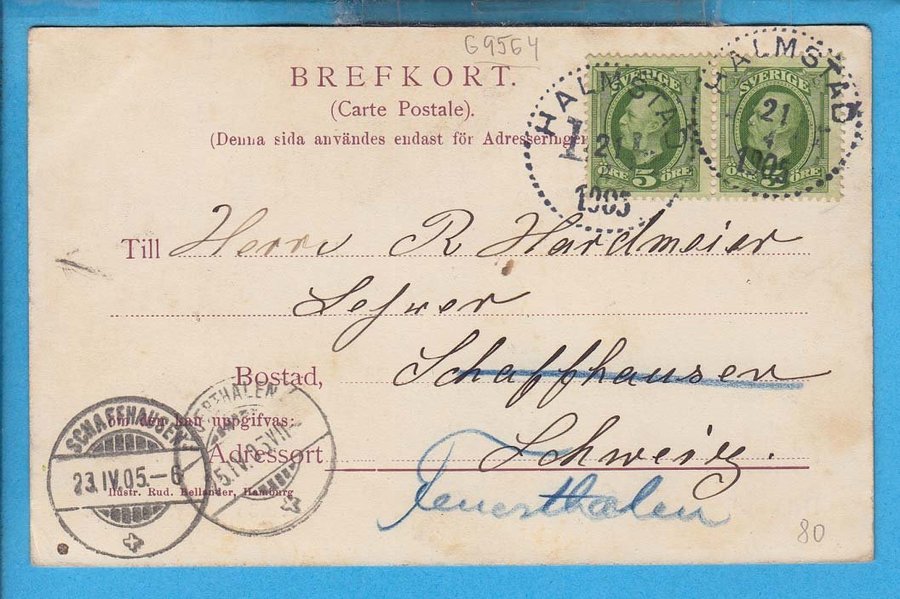 G9564
BREFKORT.
(Carte Postale).
(Denna sida användes endast för Adresseringen
HALMSTAD
21
1905
SVERIGE
5
ÖRE ÖRE
HALMSTAD
21
1905
SVERIGE
ÖRE
Till Herrn R Hardmeier
Lehrer
Bostad, Schaffhausen
om den kan uppgifvas:
Adressort Schweiz.
Feuerthalen
SCHAFFHAUSEN
23.IV.05.-6
ERTHALEN
5.IV.05.VII
Illustr. Rud. Bellander, Hamburg
80